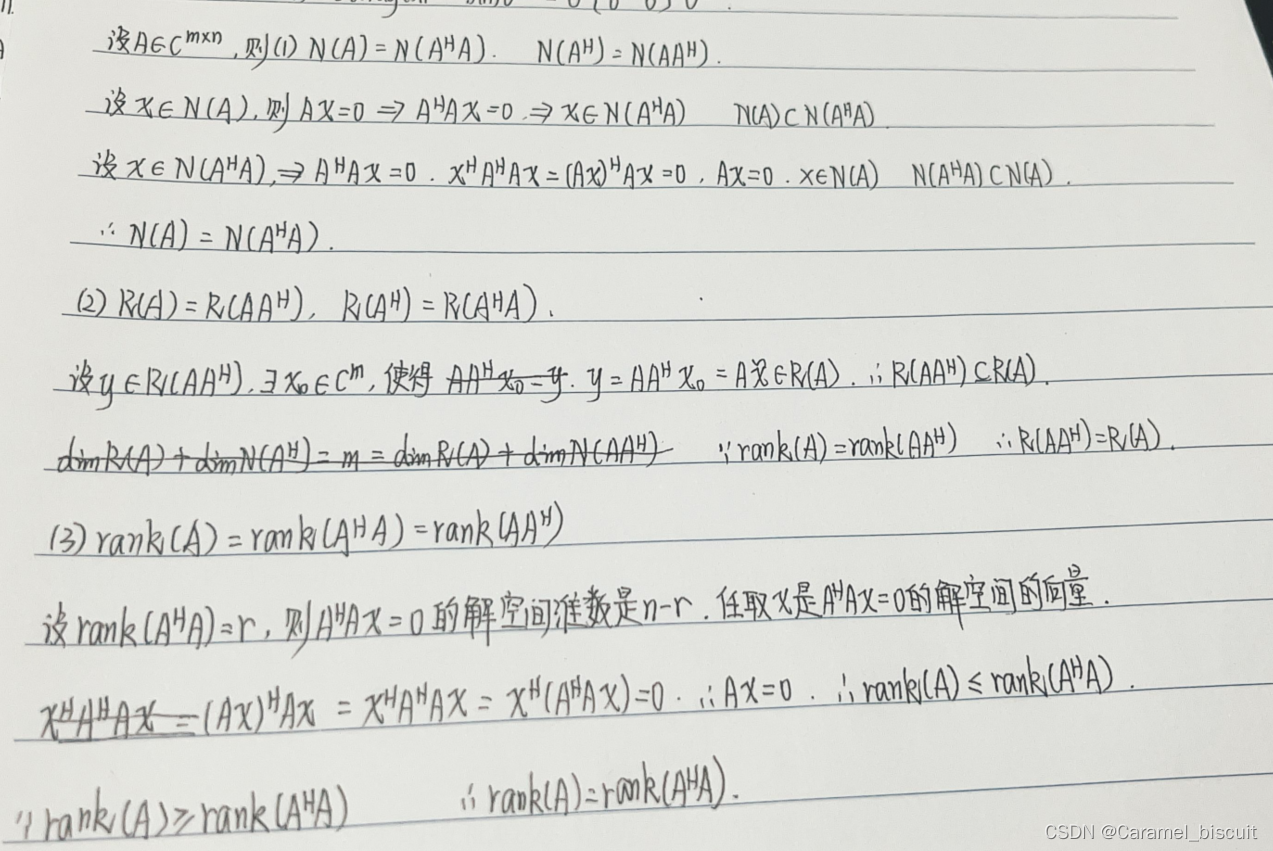 设A∈C^{m×n},则(1) N(A)=N(A^HA). N(A^H)=N(AA^H).
设x∈N(A),则 Ax=0 ⇒ A^HAx=0 ⇒ x∈N(A^HA) N(A)⊂N(A^HA)
设x∈N(A^HA),⇒ A^HAx=0. x^HA^HAx=(Ax)^HAx=0. Ax=0. x∈N(A) N(A^HA)⊂N(A).
∴ N(A)=N(A^HA).
(2) R(A)=R(AA^H), R(A^H)=R(A^HA).
设y∈R(AA^H).∃x₀∈C^m,使得 AA^Hx₀=y. y=AA^Hx₀=Ax̃∈R(A).∴R(AA^H)⊆R(A).
dimR(A)+dimN(A^H)=m=dimR(A)+dimN(AA^H) ∵rank(A)=rank(AA^H) ∴R(AA^H)=R(A).
(3) rank(A)=rank(A^HA)=rank(AA^H)
设rank(A^HA)=r,则A^HAx=0的解空间准数是n-r.任取x是A^HAx=0的解空间的向量.
x^HA^HAx=(Ax)^HAx=x^HA^HAx=x^H(A^HAx)=0.∴Ax=0.∴rank(A)≤rank(A^HA).
∵rank(A)≥rank(A^HA) ∴rank(A)=rank(A^HA).
CSDN @Caramel_biscuit